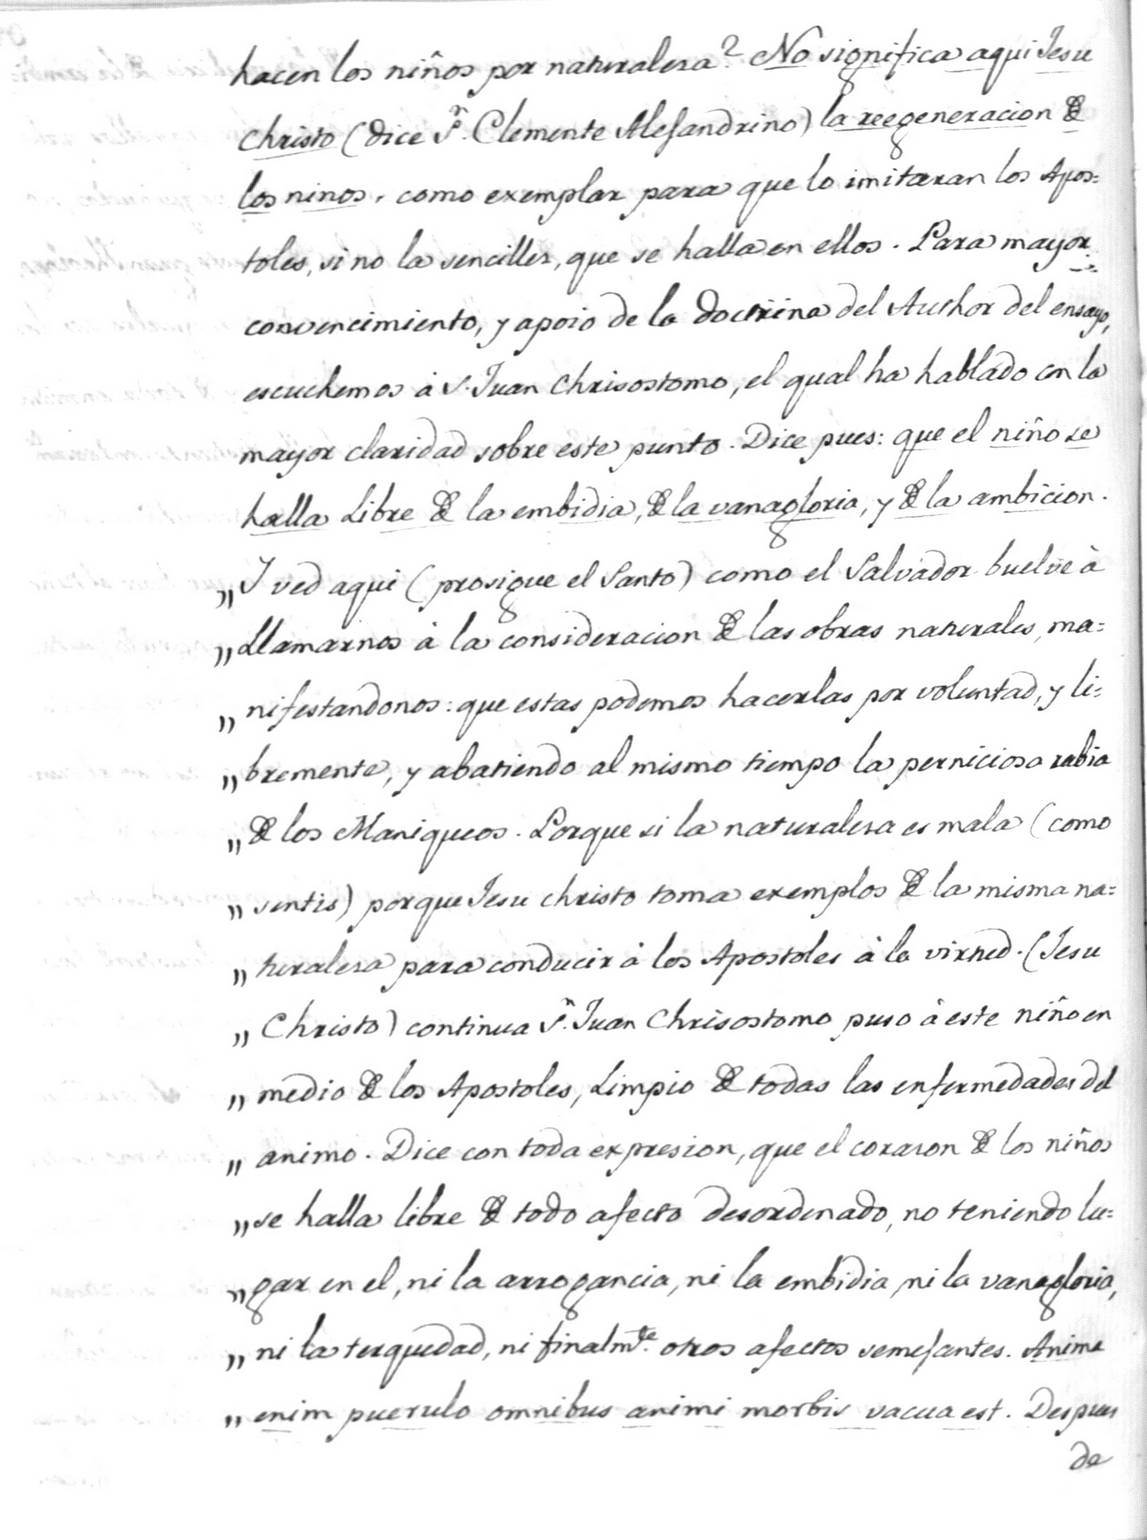 hacen los niños por naturalesa? No significa aqui Jesu
Christo (dice Sn. Clemente Alejandrino) la reegeneracion de
los ninos, como exemplar para que lo imitaran los Apos=
toles, sino la sencilles, que se halla en ellos. Para mayor
convencimiento, y apoio de la doctrina del Author del ensayo,
escuchemos à S. Juan Chrisostomo, el qual ha hablado con la
mayor claridad sobre este punto. Dice pues: que el niño se
halla Libre de la embidia, de la vanagloria, y de la ambicion.
„ Y ved aqui (prosigue el Santo) como el Salvador buelve à
„ Llamarnos à la consideracion de las obras naturales, ma=
„ nifestandonos: que estas podemos hacerlas por voluntad, y li=
„ bremente, y abatiendo al mismo tiempo la perniciosa rabia
„ de los Maniqueos. Porque si la naturalesa es mala (como
„ sentis) porque Jesu christo toma exemplos de la misma na=
„ turalesa para conducir à los Apostoles à la virtud. (Jesu
„ Christo) continua Sn. Juan Chrisostomo puso à este niño en
„ medio de los Apostoles, Limpio de todas las enfermedades del
„ animo. Dice con toda expresion, que el corason de los niños
„ se halla libre de todo afecto desordenado, no teniendo lu=
„ gar en el, ni la arrogancia, ni la embidia, ni la vanagloria,
„ ni la terquedad, ni finalmte. otros afectos semejantes. Anima
„ enim puerulo omnibus animi morbis vacua est. Despues
de